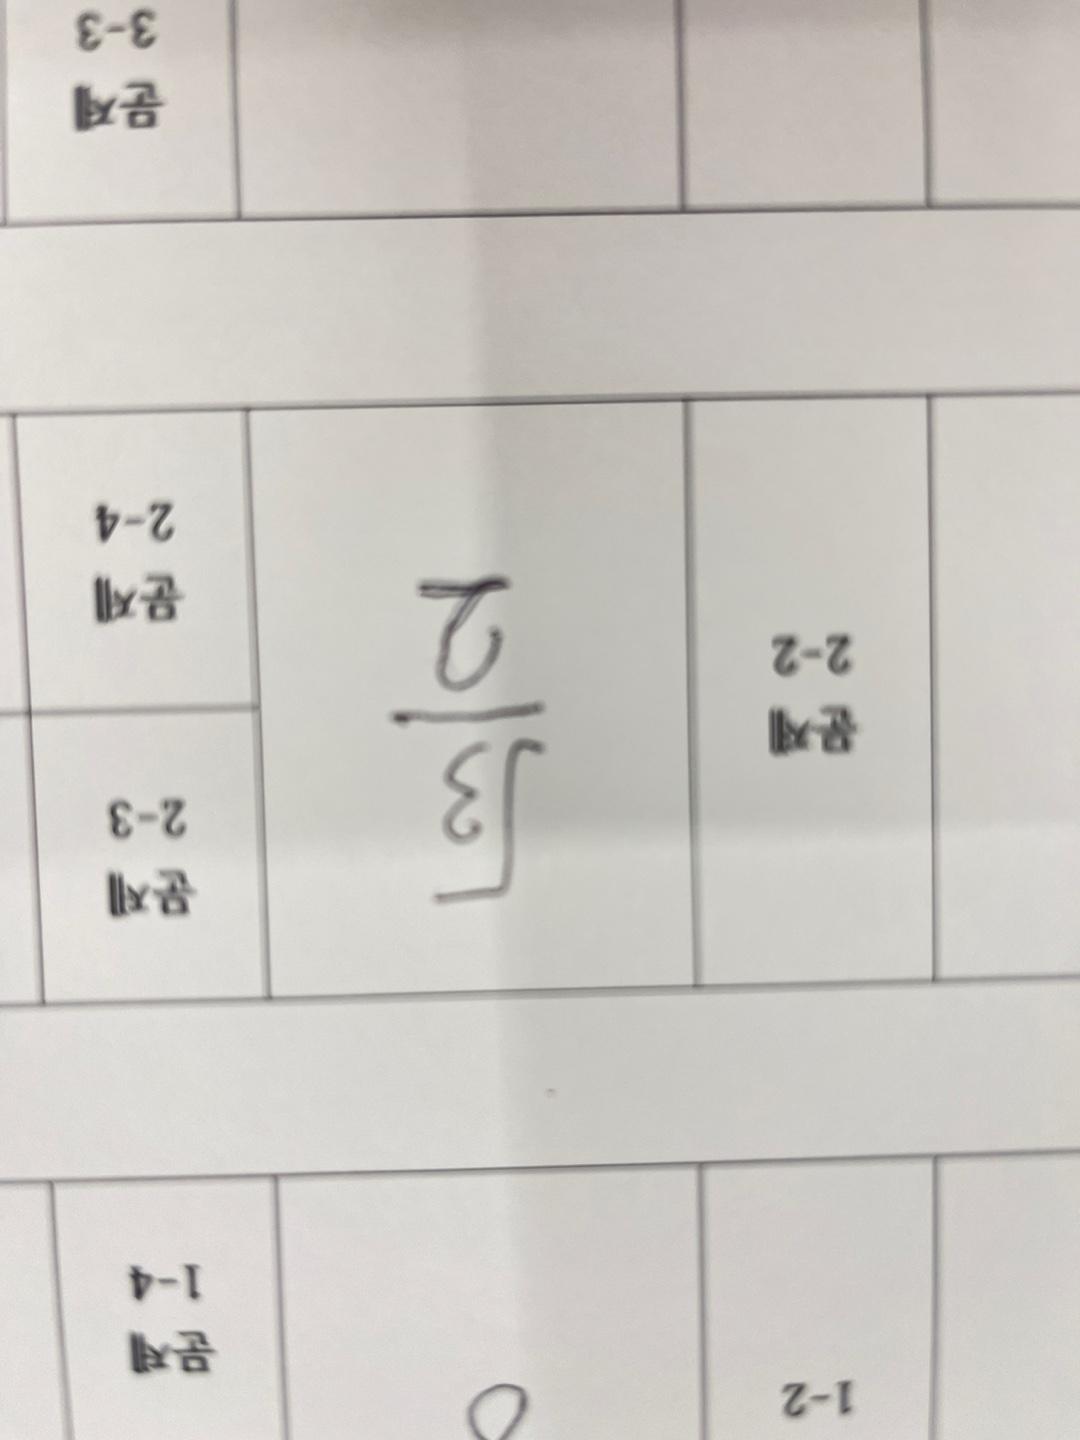 1-2
0
문제
1-4
문제
2-2
√3
2
문제
2-3
문제
2-4
문제
3-3